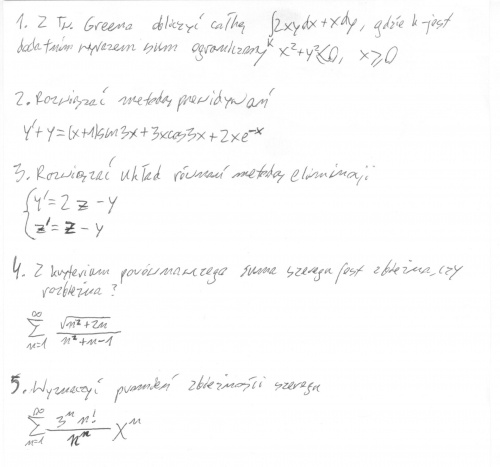 1. Z Tw. Greena obliczyć całkę ∫2xydx+xdy, gdzie k-jest
k
dodatnim ograniczony x²+y²≤0, x≥0
2. Rozwiązać metodą przewidywań
y'+y=(x+1)sin3x+3xcos3x+2xe^-x
3. Rozwiązać układ równań metodą eliminacji
{y'=2z-y
z'=z-y
4. Z kryterium porównawczego suma szeregu jest zbieżna, czy
rozbieżna?
∑_{n=1}^{∞} √(n²+2n)/(n²+n-1)
5. Wyznaczyć promień zbieżności szeregu
∑_{n=1}^{∞} (3^n n!)/(n^n) x^n